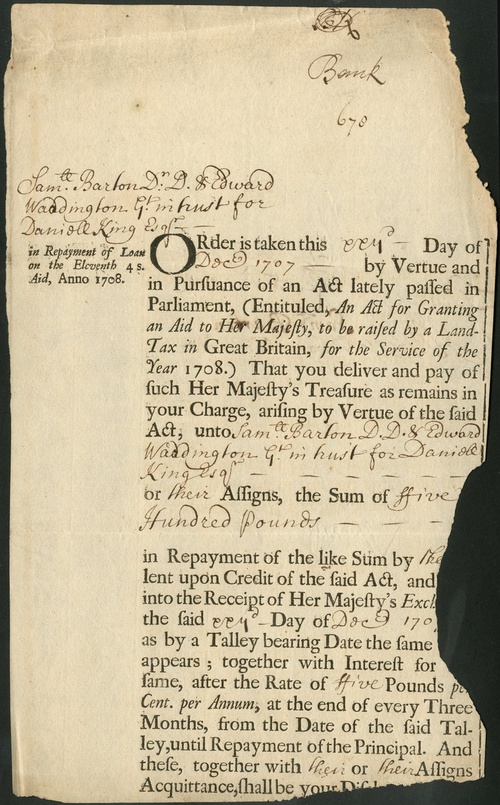 Bank
678
Samll Barton Dr. D. & Edward
Waddington Gt. in trust for
Daniell King Esqr
in Repayment of Loan
on the Eleventh 4 s.
Aid, Anno 1708.
ORder is taken this xxijd — Day of
Decr 1707 — by Vertue and
in Pursuance of an Act lately passed in
Parliament, (Entituled, An Act for Granting
an Aid to Her Majesty, to be raised by a Land-
Tax in Great Britain, for the Service of the
Year 1708.) That you deliver and pay of
such Her Majesty's Treasure as remains in
your Charge, arising by Vertue of the said
Act, unto Samll Barton D. D. & Edward
Waddington Gt. in trust for Daniell
King Esqr — — — — —
or their Assigns, the Sum of ffive
Hundred Pounds — — —
in Repayment of the like Sum by
lent upon Credit of the said Act, and
into the Receipt of Her Majesty's Exch
the said xxijd — Day of Decr 170
as by a Talley bearing Date the same
appears; together with Interest for
same, after the Rate of ffive Pounds per
Cent. per Annum, at the end of every Three
Months, from the Date of the said Tal-
ley, until Repayment of the Principal. And
these, together with their or their Assigns
Acquittance, shall be your